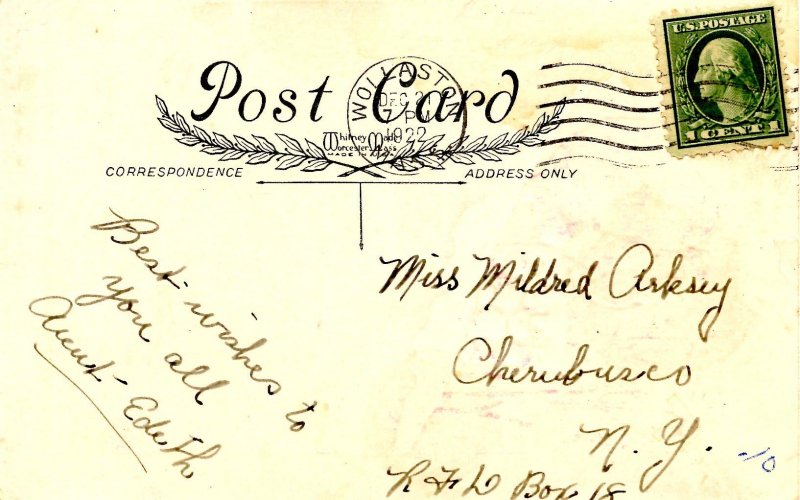 Post Card
WOLLASTON
DEC 2
7 PM
1922
U.S. POSTAGE
1 CENT 1
Whitney Made
Worcester, Mass
MADE IN
CORRESPONDENCE
ADDRESS ONLY
Best wishes to
you all
Aunt Edith
Miss Mildred Arksey
Cherubusco
N. Y.
R F D Box 18
-10